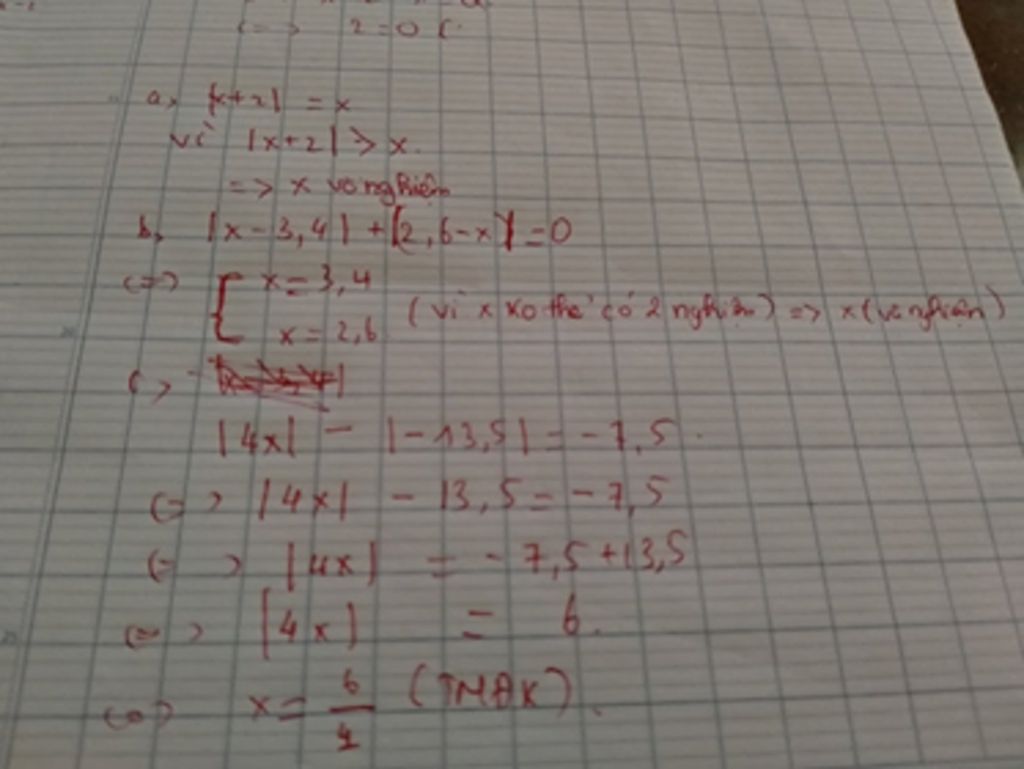 (=> 2=0 (
a, |x+2| = x
vì |x+2| > x.
=> x vô nghiệm
b, |x - 3,4| + |2,6-x| = 0
(=>) x = 3,4
x = 2,6 (vì x ko thể có 2 nghiệm) => x (vô nghiệm)
|4x| - |-13,5| = -7,5
(=> |4x| - 13,5 = -7,5
(=> |4x| = -7,5 + 13,5
(=> |4x| = 6.
(=> x = 6/4 (TMĐK).